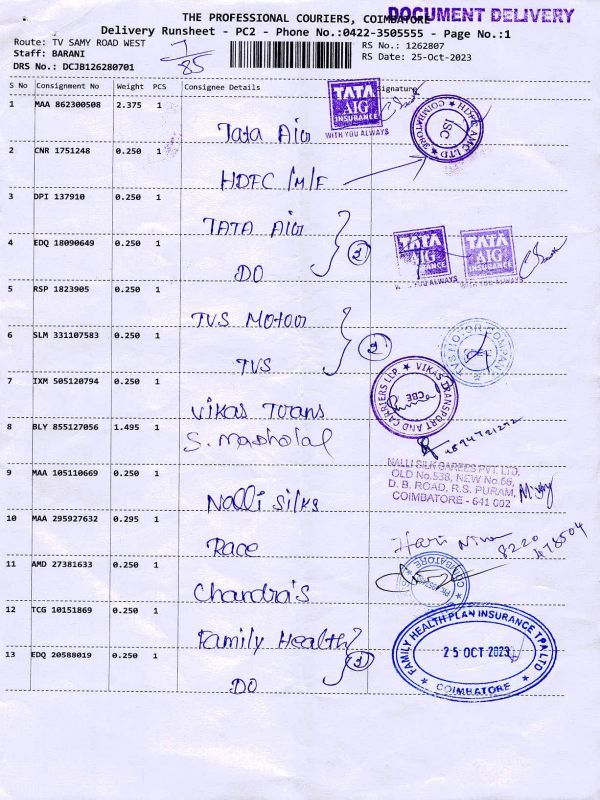 THE PROFESSIONAL COURIERS, COIMBATORE
DOCUMENT DELIVERY
Delivery Runsheet - PC2 - Phone No.:0422-3505555 - Page No.:1
Route: TV SAMY ROAD WEST
Staff: BARANI
DRS No.: DCJB126280701
RS No.: 1262807
RS Date: 25-Oct-2023
S No Consignment No Weight PCS Consignee Details Signature
1 MAA 862300508 2.375 1 Tata Aig
TATA
AIG
INSURANCE
WITH YOU ALWAYS
HDFC AMC LTD
COIMBATORE
ISC
2 CNR 1751248 0.250 1 HDFC M/F
3 DPI 137910 0.250 1 TATA Aig
4 EDQ 18090649 0.250 1 DO
2
TATA
AIG
INSURANCE
WITH YOU ALWAYS
TATA
AIG
INSURANCE
WITH YOU ALWAYS
5 RSP 1823905 0.250 1 TVS Motoor
6 SLM 331107583 0.250 1 TVS
2
TVS MOTOR COMPANY
7 IXM 505120794 0.250 1 Vikas Trans
VIKAS TRANSPORT AND CARRIERS LLP
CBE
8 BLY 855127056 1.495 1
9 MAA 105110669 0.250 1 Nalli Silks
NALLI SILK SAREES PVT. LTD.
OLD No.538, NEW No.66,
D. B. ROAD, R.S. PURAM,
COIMBATORE - 641 002
10 MAA 295927632 0.295 1 Race
Hari
8220
478504
11 AMD 27381633 0.250 1 Chandra's
COIMBATORE
12 TCG 10151869 0.250 1 Family Health
13 EDQ 20588019 0.250 1 DO
2
FAMILY HEALTH PLAN INSURANCE TPA LTD
25 OCT 2023
COIMBATORE